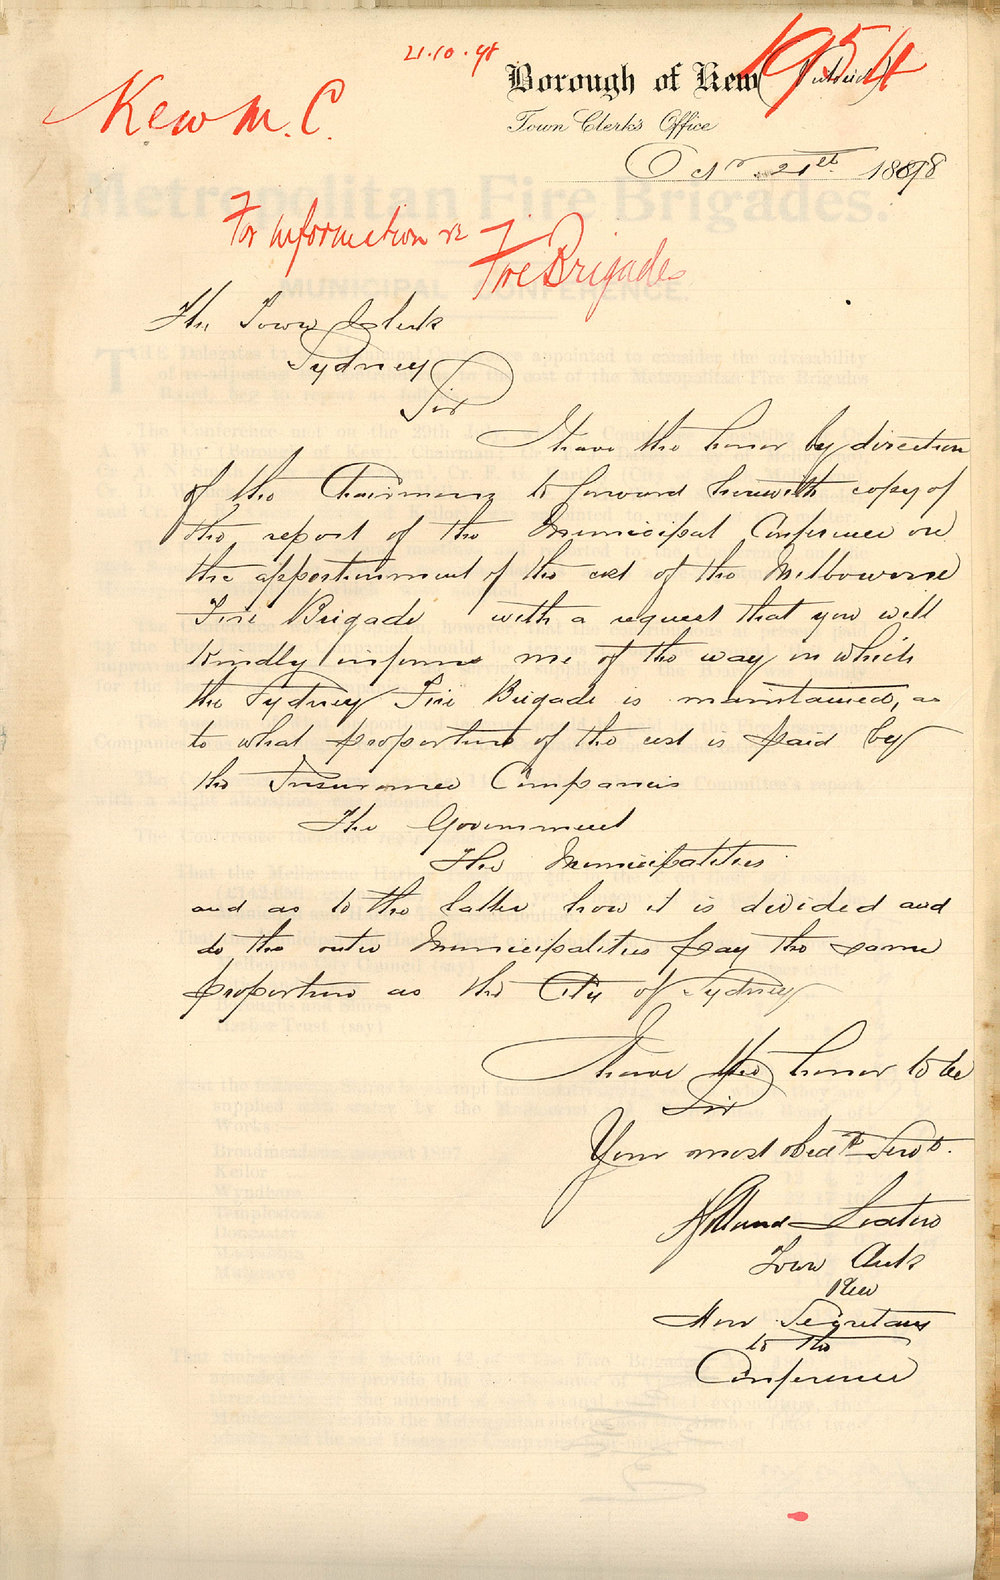 21.10.98
1954
Kew M.C.
Borough of Kew (Victoria)
Town Clerk's Office
Octr 21st 1898
For information re
Fire Brigades
The Town Clerk
Sydney
Sir
I have the honor by direction
of the Chairman to forward herewith copy of
the report of the Municipal Conference on
the apportionment of the cost of the Melbourne
Fire Brigade with a request that you will
kindly inform me of the way in which
the Sydney Fire Brigade is maintained, as
to what proportion of the cost is paid by
the Insurance Companies
The Government
The Municipalities
and as to the latter how it is divided and
do the outer Municipalities pay the same
proportion as the City of Sydney
I have the honor to be
Sir
Your most obedt Servt.
Town Clerk
Kew
Hon Secretary
to the
Conference